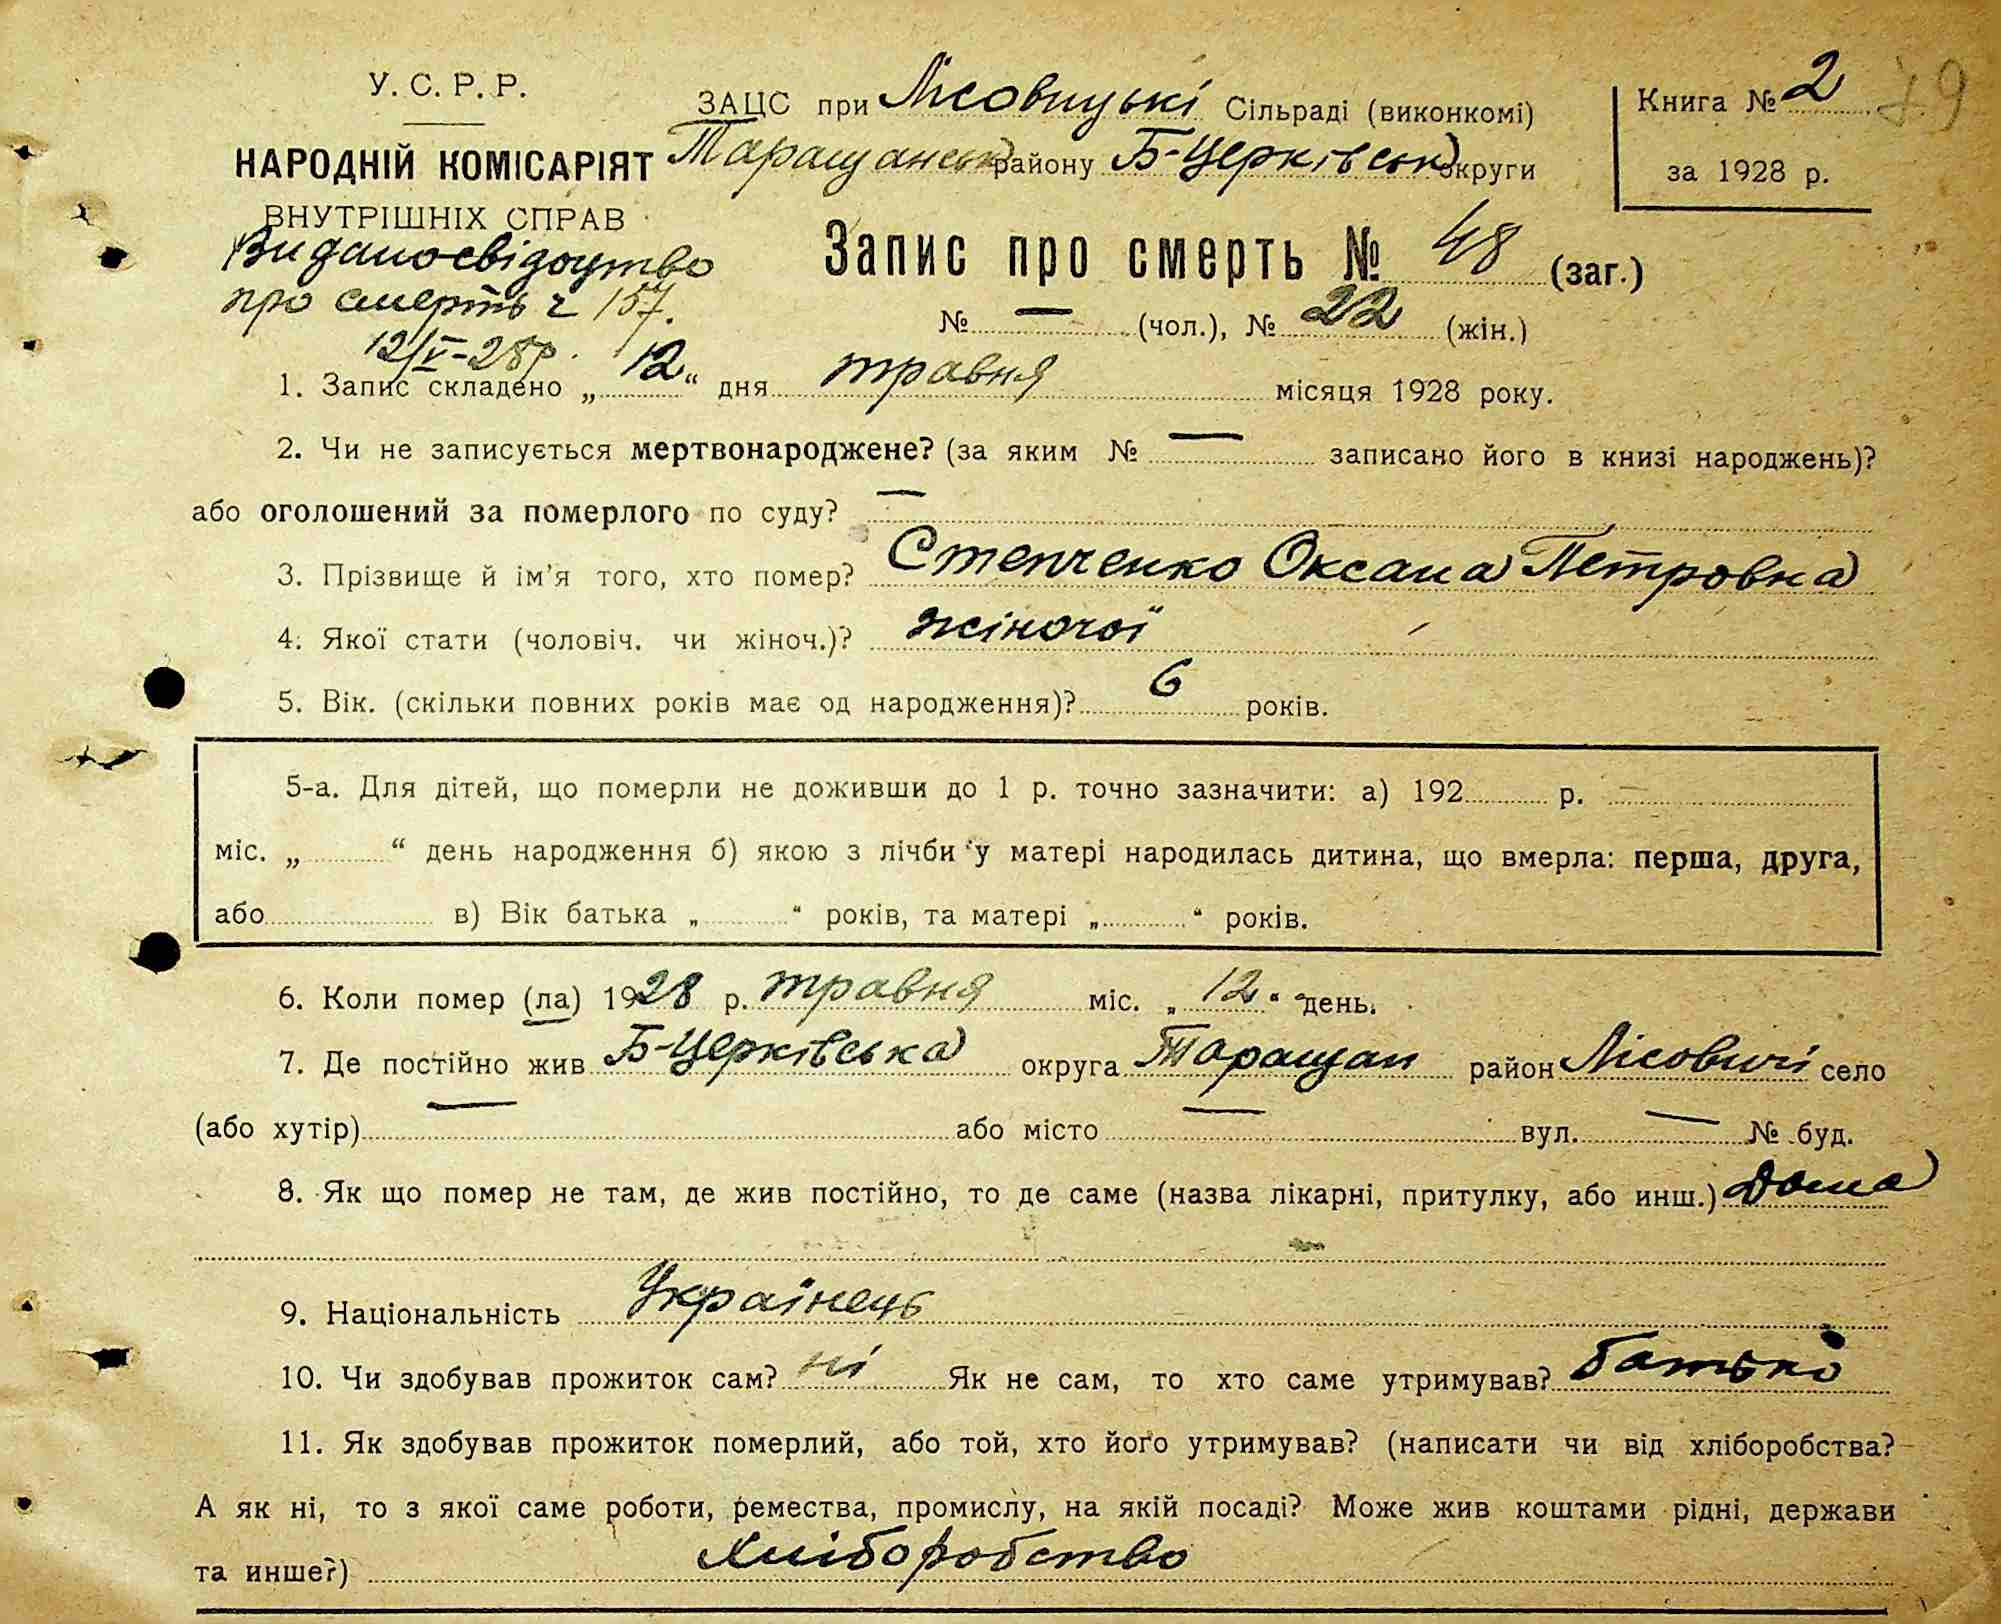 У. С. Р. Р.
НАРОДНІЙ КОМІСАРІЯТ
ВНУТРІШНІХ СПРАВ
Видано свідоцтво
про смерть ч 157.
12/V-28р.
ЗАЦС при Лісовицькі Сільраді (виконкомі)
Таращанськ району Б-Церківськ округи
Книга № 2
за 1928 р.
79
Запис про смерть № 48 (заг.)
№ — (чол.), № 22 (жін.)
1. Запис складено „12“ дня травня місяця 1928 року.
2. Чи не записується мертвонароджене? (за яким № — записано його в книзі народжень)?
або оголошений за померлого по суду? —
3. Прізвище й ім'я того, хто помер? Степченко Оксана Петровна
4. Якої стати (чоловіч. чи жіноч.)? жіночої
5. Вік. (скільки повних років має од народження)? 6 років.
5-а. Для дітей, що померли не доживши до 1 р. точно зазначити: а) 192 р. —
міс. „ “ день народження б) якою з лічби у матері народилась дитина, що вмерла: перша, друга,
або в) Вік батька „ “ років, та матері „ “ років.
6. Коли помер (ла) 1928 р. травня міс. „12“ день.
7. Де постійно жив Б-Церківська округа Таращан район Лісовичі село
(або хутір) — або місто — вул. — № буд.
8. Як що помер не там, де жив постійно, то де саме (назва лікарні, притулку, або инш.) Дома
9. Національність Українець
10. Чи здобував прожиток сам? ні Як не сам, то хто саме утримував? батько
11. Як здобував прожиток померлий, або той, хто його утримував? (написати чи від хліборобства?
А як ні, то з якої саме роботи, ремества, промислу, на якій посаді? Може жив коштами рідні, держави
та инше?) Хліборобство